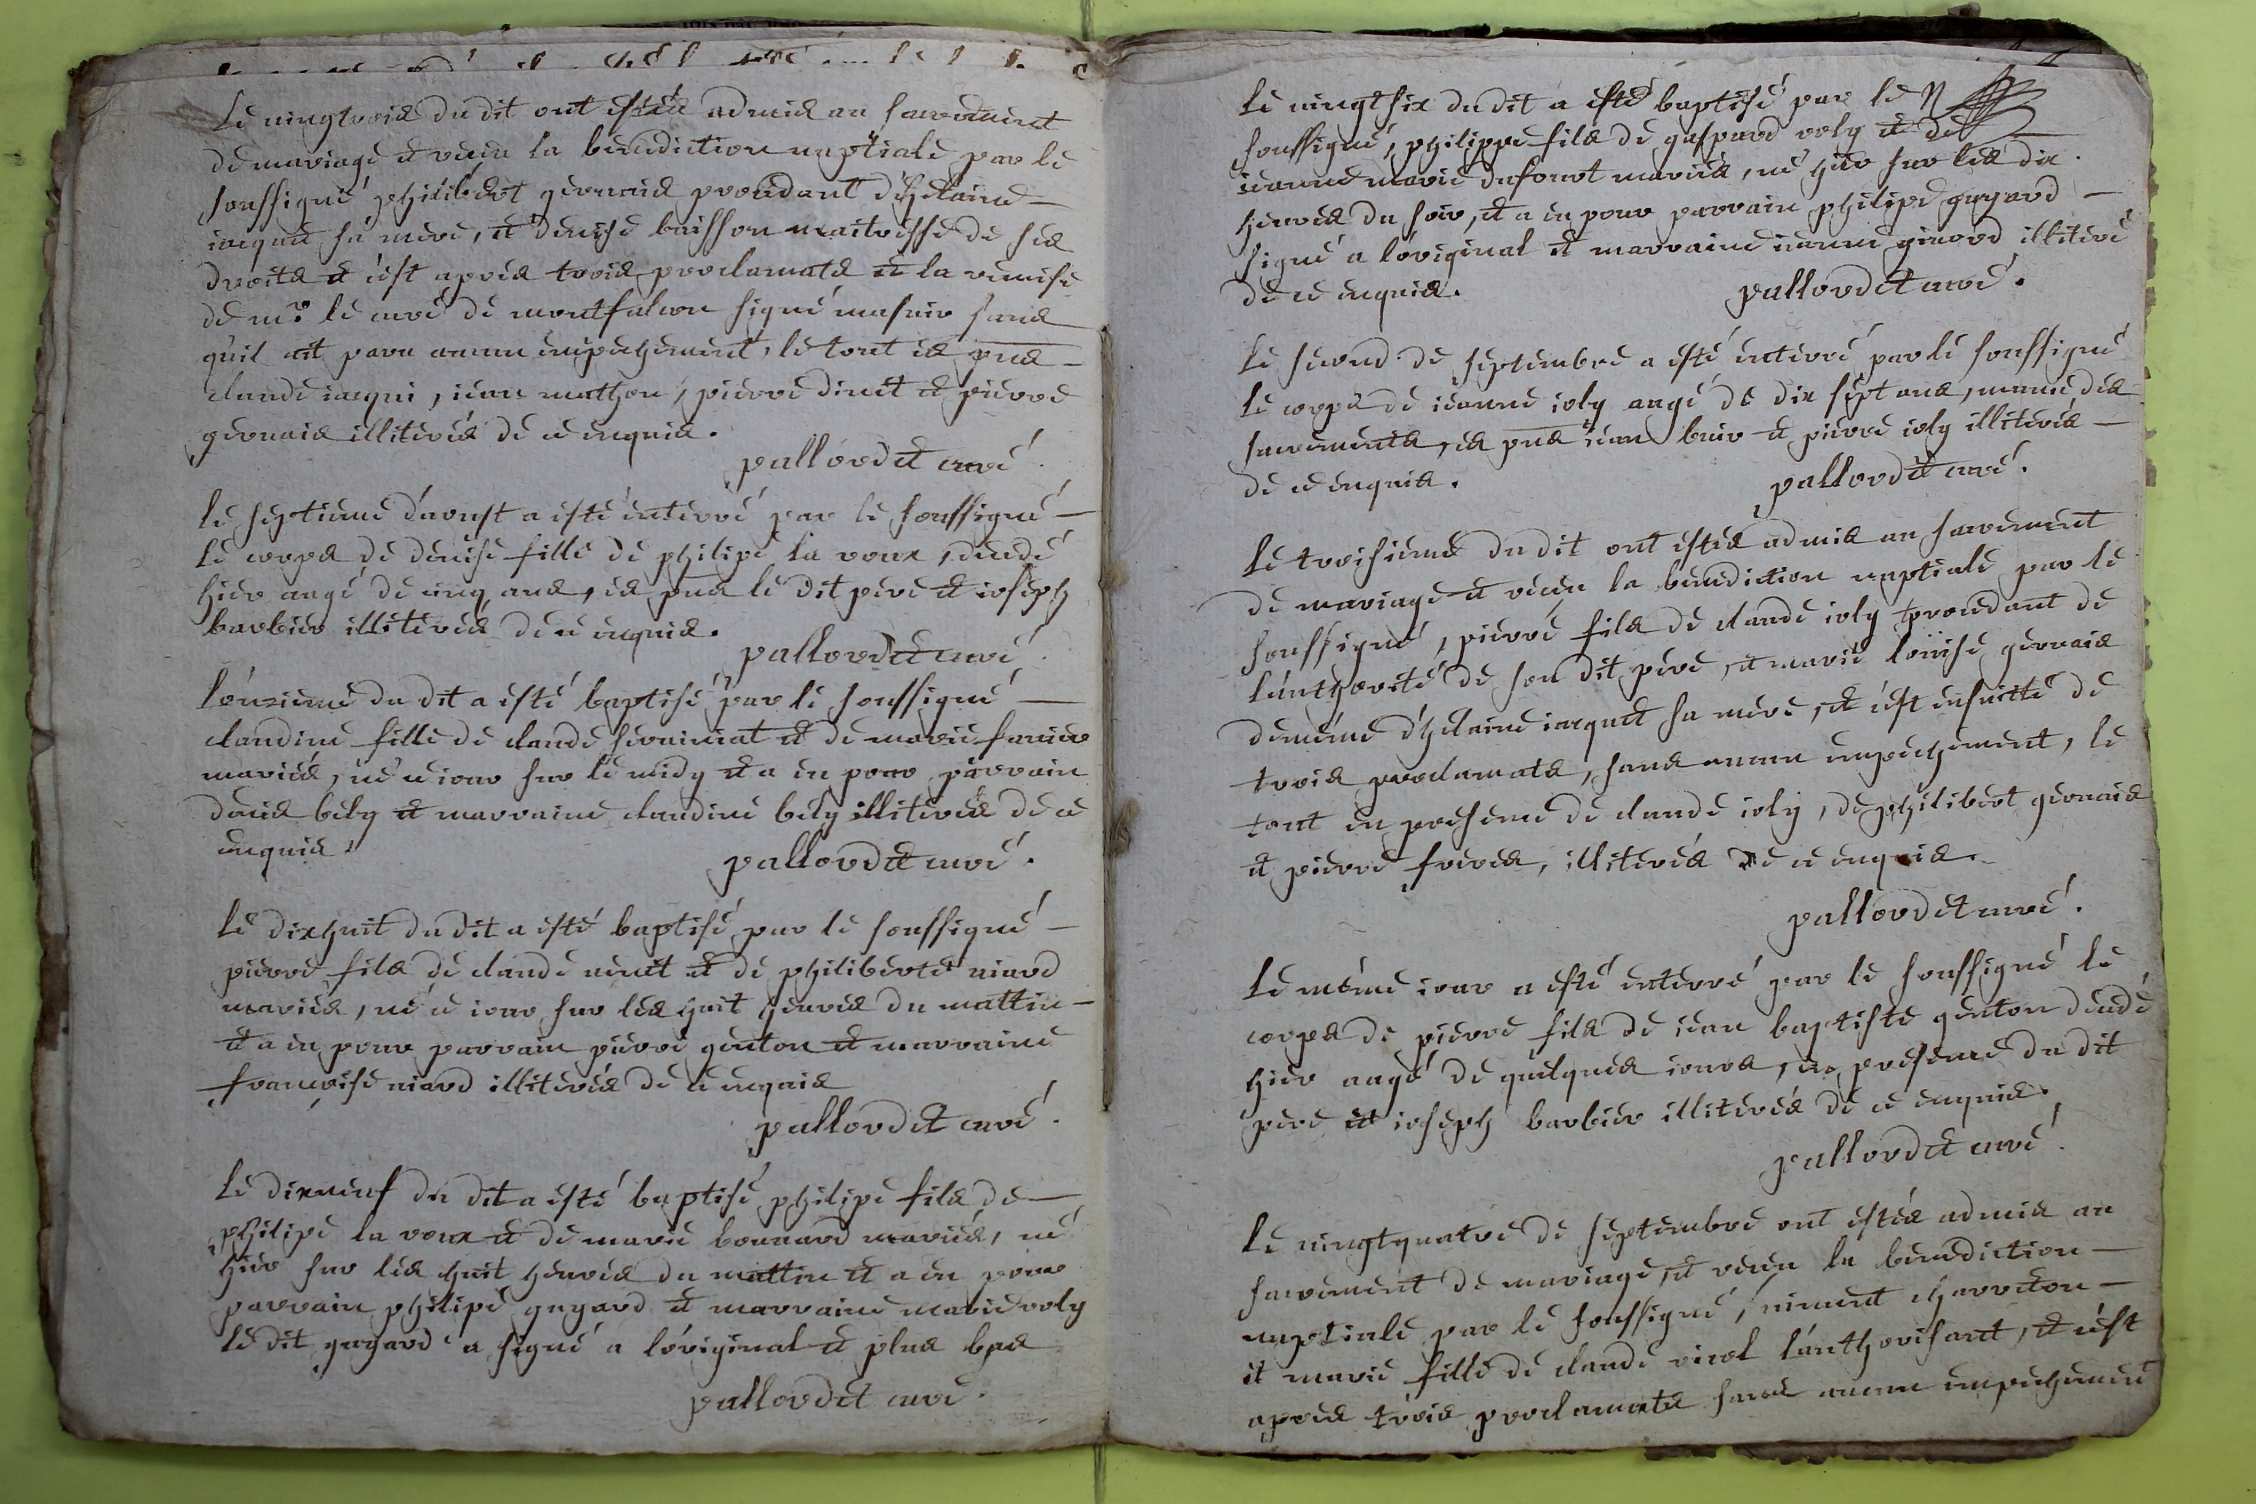 le vingtrois du dit ont estés admis au sacrement
de mariage et receu la bénédiction nuptiale par le
soussigné philibert gervais procédant d'helaine
iaquet sa mere, et denise buisson maitresse de ses
droits et c'est aprés trois proclamats et la remise
de mr. le curé de montfalcon signé sans
quil ait paru aucun empechement, le tout és pnces
claude iaqui, iean mathon, pierre et pierre
gervais illiterés de ce enquis.
pallordet curé.
le septieme d'aoust a esté enterré par le soussigné
le corps de denise fille de philipe la roux, décédé
hier aagé de cinq ans, és pnces le dit pere et ioseph
barbier illiterés de ce enquis.
pallordet curé.
l'onzieme du dit a esté baptisé par le soussigné
claudine fille de claude et de marie
mariés, né ce iour sur le midy et a eu pour parrain
denis bely et marraine claudine bely illiterés de ce
enquis.
pallordet curé.
le dixhuit du dit a esté baptisé par le soussigné
pierre fils de claude et de philiberte niard
mariés, né ce iour sur les huit heures du mattin
et a eu pour parrain pierre genton et marraine
francoise niard illiterés de ce enquis
pallordet curé.
le dixneuf du dit a esté baptisé philipe fils de
philipe la roux et de marie bonnard mariés, né
hier sur les huit heures du mattin et a eu pour
parrain philipe guyard et marraine marie roly
le dit guyard a signé a l'original et plus bas
pallordet curé.
le vingtsix du dit a esté baptisé par le
soussigné, philippe fils de gaspard roly et de
ieanne marie dufourt mariés, né hier sur les dix
heures du soir, et a eu pour parrain philipe guyard
signé a l'original et marraine ieanne girard illiteré
de ce enquis.
pallordet curé.
le second de septembre a esté enterré par le soussigné
le corps de ieanne ioly aagé de dix sept ans, munie des
sacrements, és pnces iean et pierre ioly illiterés
de ce enquis.
pallordet curé.
le troisieme du dit ont estés admis au sacrement
de mariage et receu la bénédiction nuptiale par le
soussigné, pierre fils de claude ioly procédant de
l'authorité de son dit pére, et marie loüise gervais
demême d'helaine iaquet sa mere, et c'est ensuitte de
trois proclamats, sans aucun empechement, le
tout en presence de claude ioly, de philibert gervais
et pierre freres, illiterés de ce enquis.
pallordet curé.
le même iour a esté enterré par le soussigné le
corps de pierre fils de iean baptiste genton décédé
hier aagé de quelques iours, en presence du dit
pere et ioseph barbier illiterés de ce enquis.
pallordet curé.
le vingtquatre de septembre ont estés admis au
sacrement de mariage, et receu la bénédiction
nuptiale par le soussigné, vincent charreton
et marie fille de claude l'authorisant, et c'est
aprés trois proclamats sans aucun empechement